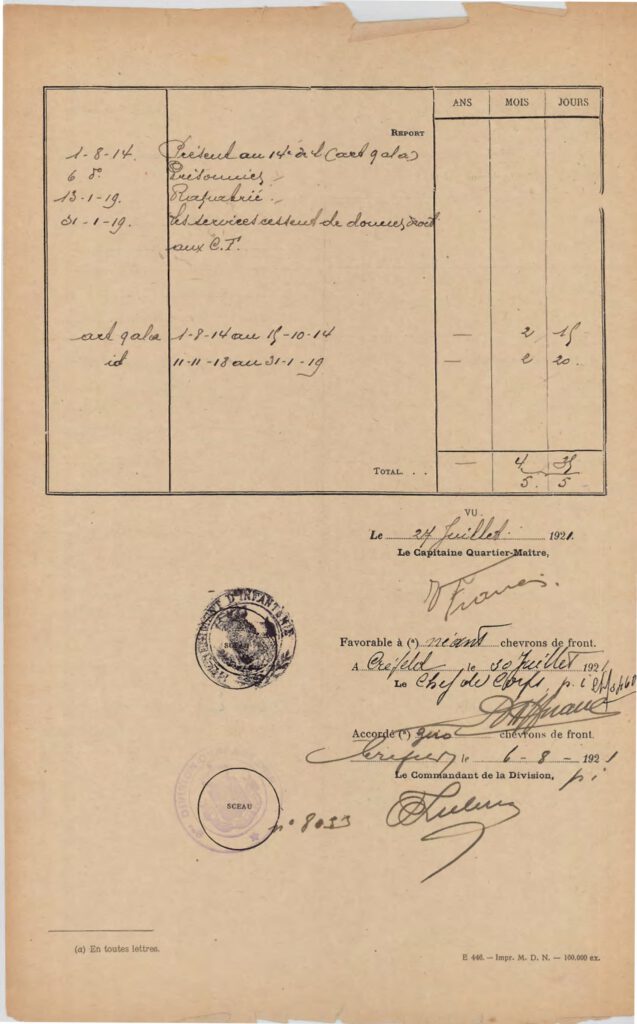 ANS MOIS JOURS
REPORT
1-8-14. Présent au 14e de L (art 9 al a)
6 8. Prisonnier
13-1-19. Rapatrié
31-1-19. Les services cessent de donner droit
aux C.F.
art 9 al a 1-8-14 au 15-10-14 — 2 15
id 11-11-18 au 31-1-19 — 2 20.
TOTAL. . . — 4 35
5. 5
VU
Le 27 Juillet. 1921.
Le Capitaine Quartier-Maître,
Favorable à (a) néant chevrons de front.
A Créfeld le 30 Juillet 1921
Le Chef de Corps p. i
Accordé (a) zéro chevrons de front.
le 6-8-1921
Le Commandant de la Division, p i
REGIMENT D'INFANTERIE
SCEAU
DIVISION
SCEAU
n° 8033
(a) En toutes lettres.
E 446. — Impr. M. D. N. — 100.000 ex.